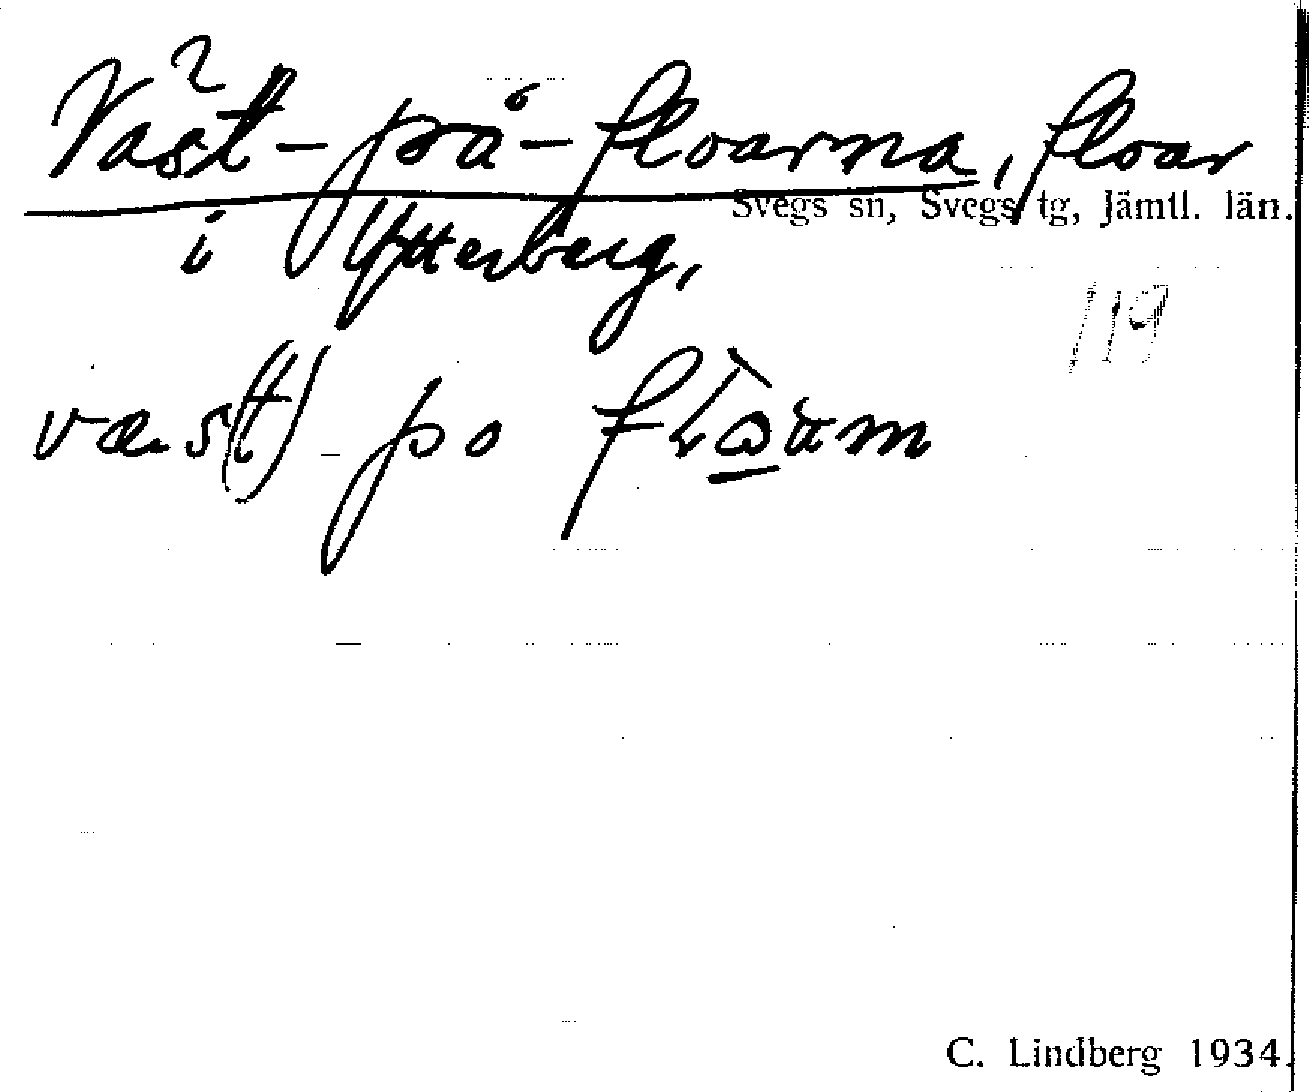 Väst-på-floarna, floar
Svegs sn, Svegs tg, Jämtl. län.
i Ytterberg,
119
væs(t) po
C. Lindberg 1934.